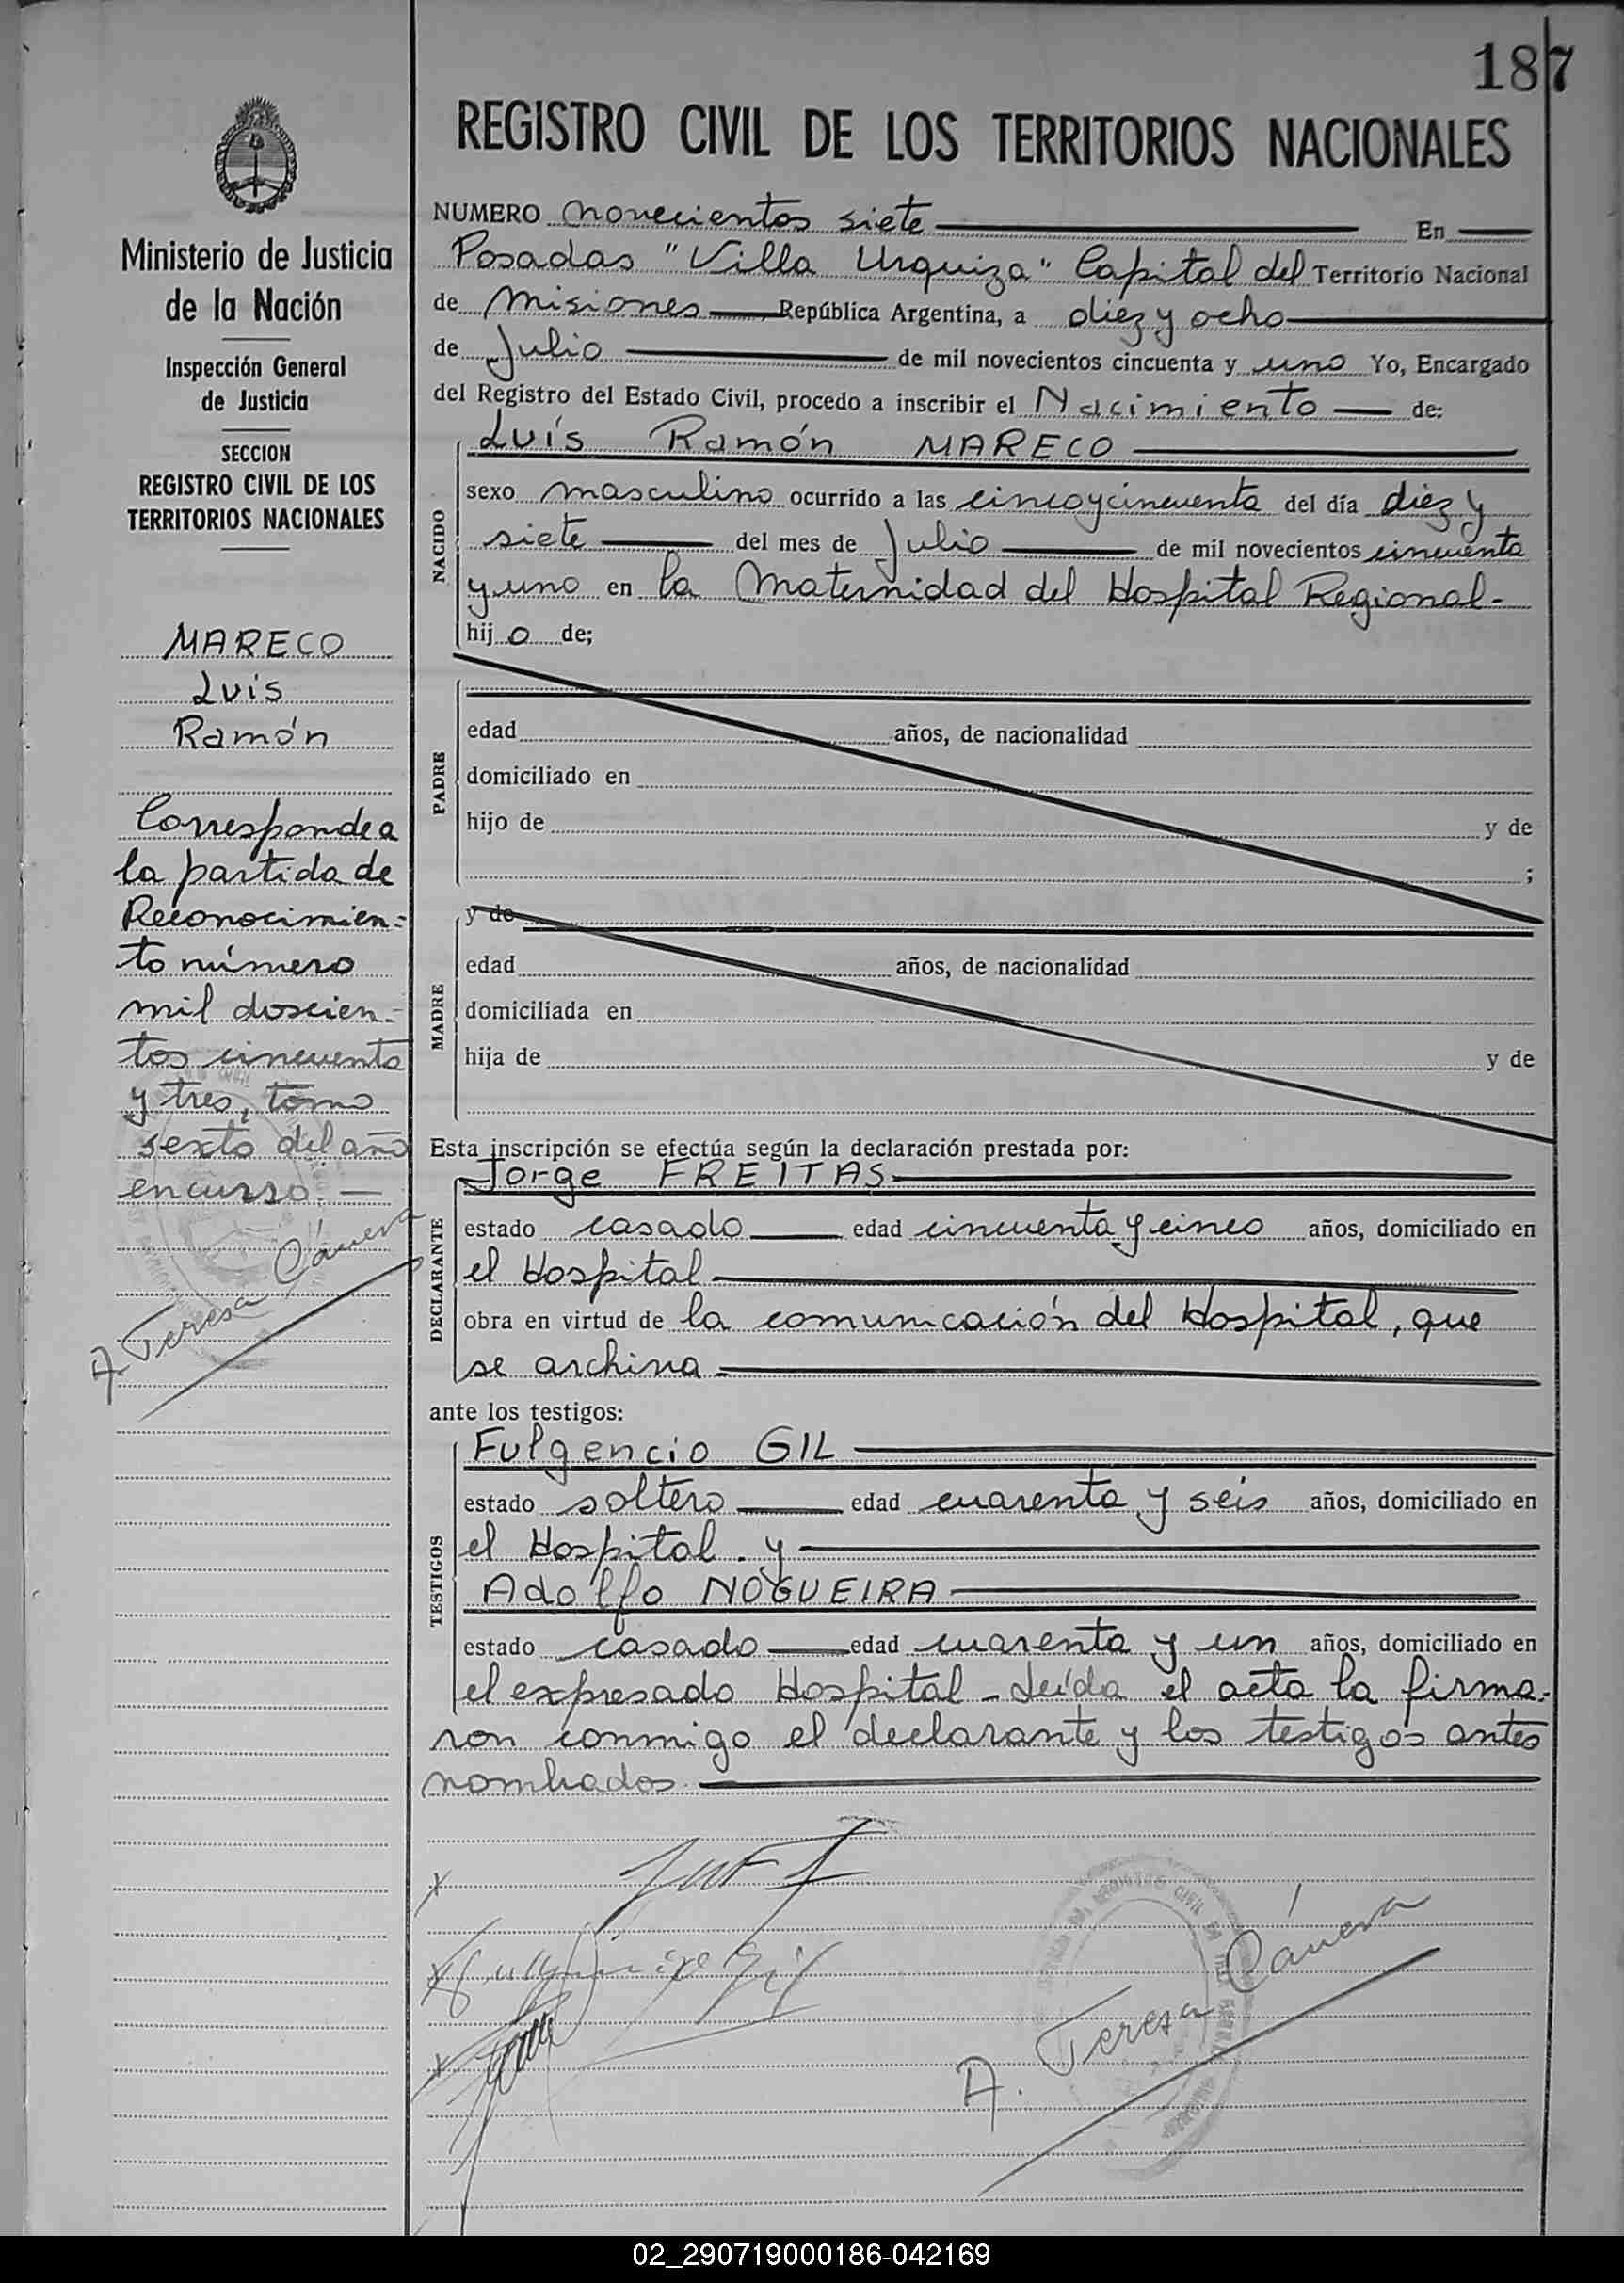 187
REGISTRO CIVIL DE LOS TERRITORIOS NACIONALES
Ministerio de Justicia
de la Nación
Inspección General
de Justicia
SECCION
REGISTRO CIVIL DE LOS
TERRITORIOS NACIONALES
MARECO
Luis
Ramón
Corresponde a
la partida de
Reconocimien-
to número
mil doscien-
tos cincuenta
y tres, tomo
sexto del año
en curso. —
A. Teresa Cánera
NUMERO novecientos siete En
Posadas "Villa Urquiza" Capital del Territorio Nacional
de Misiones República Argentina, a diez y ocho
de Julio de mil novecientos cincuenta y uno Yo, Encargado
del Registro del Estado Civil, procedo a inscribir el Nacimiento de:
Luís Ramón MARECO
NACIDO
sexo masculino ocurrido a las cinco y cincuenta del día diez y
siete del mes de Julio de mil novecientos cincuenta
y uno en la Maternidad del Hospital Regional-
hijo de;
PADRE
edad años, de nacionalidad
domiciliado en
hijo de y de
;
MADRE
y de
edad años, de nacionalidad
domiciliada en
hija de y de
Esta inscripción se efectúa según la declaración prestada por:
Jorge FREITAS
DECLARANTE
estado casado edad cincuenta y cinco años, domiciliado en
el Hospital
obra en virtud de la comunicación del Hospital, que
se archiva
ante los testigos:
Fulgencio GIL
TESTIGOS
estado soltero edad cuarenta y seis años, domiciliado en
el Hospital. y
Adolfo NOGUEIRA
estado casado edad cuarenta y un años, domiciliado en
el expresado Hospital - Leída el acta la firma-
ron conmigo el declarante y los testigos antes
nombrados
x
x Fulgencio Gil
x
A. Teresa Cánera
02_290719000186-042169